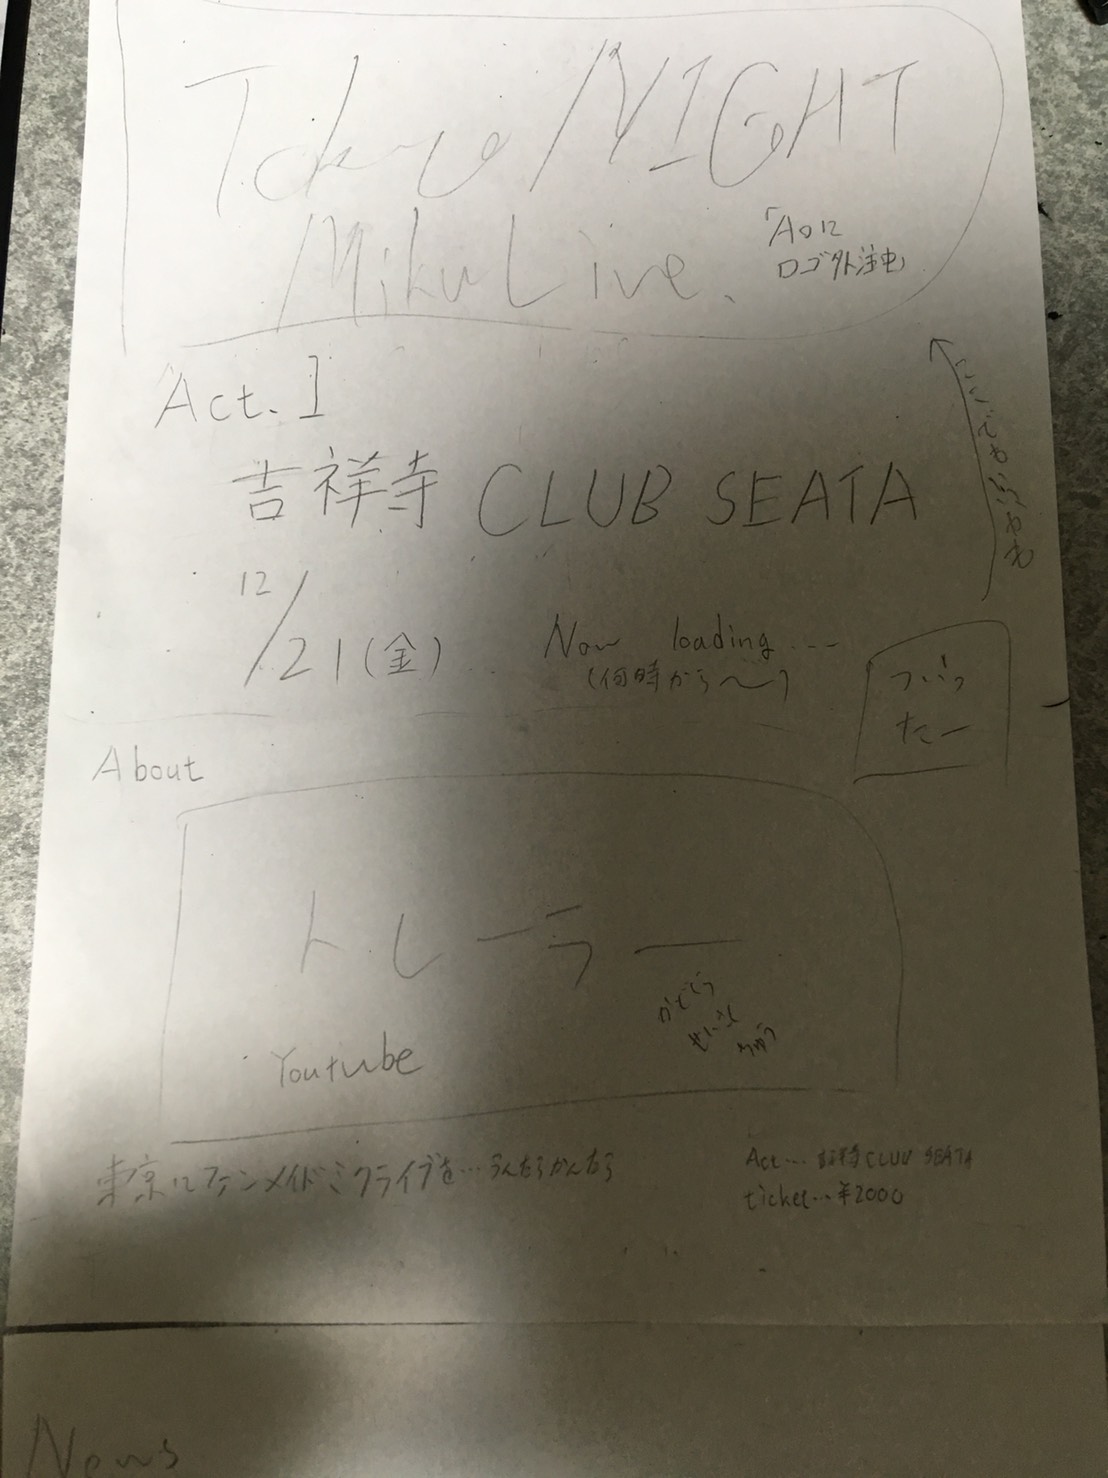 Tokyo NIGHT
Miku Live.
「Aoに
ロゴ外注中」
Act. 1
吉祥寺 CLUB SEATA
12/21(金)
Now loading...
(何時から〜)
ついったー
About
トレーラー
Youtube
かくとくせいちゅう
東京にファンメイドミクライブを…うんたらかんたら
Act... 吉祥寺 CLUB SEATA
ticket... ¥2000
News